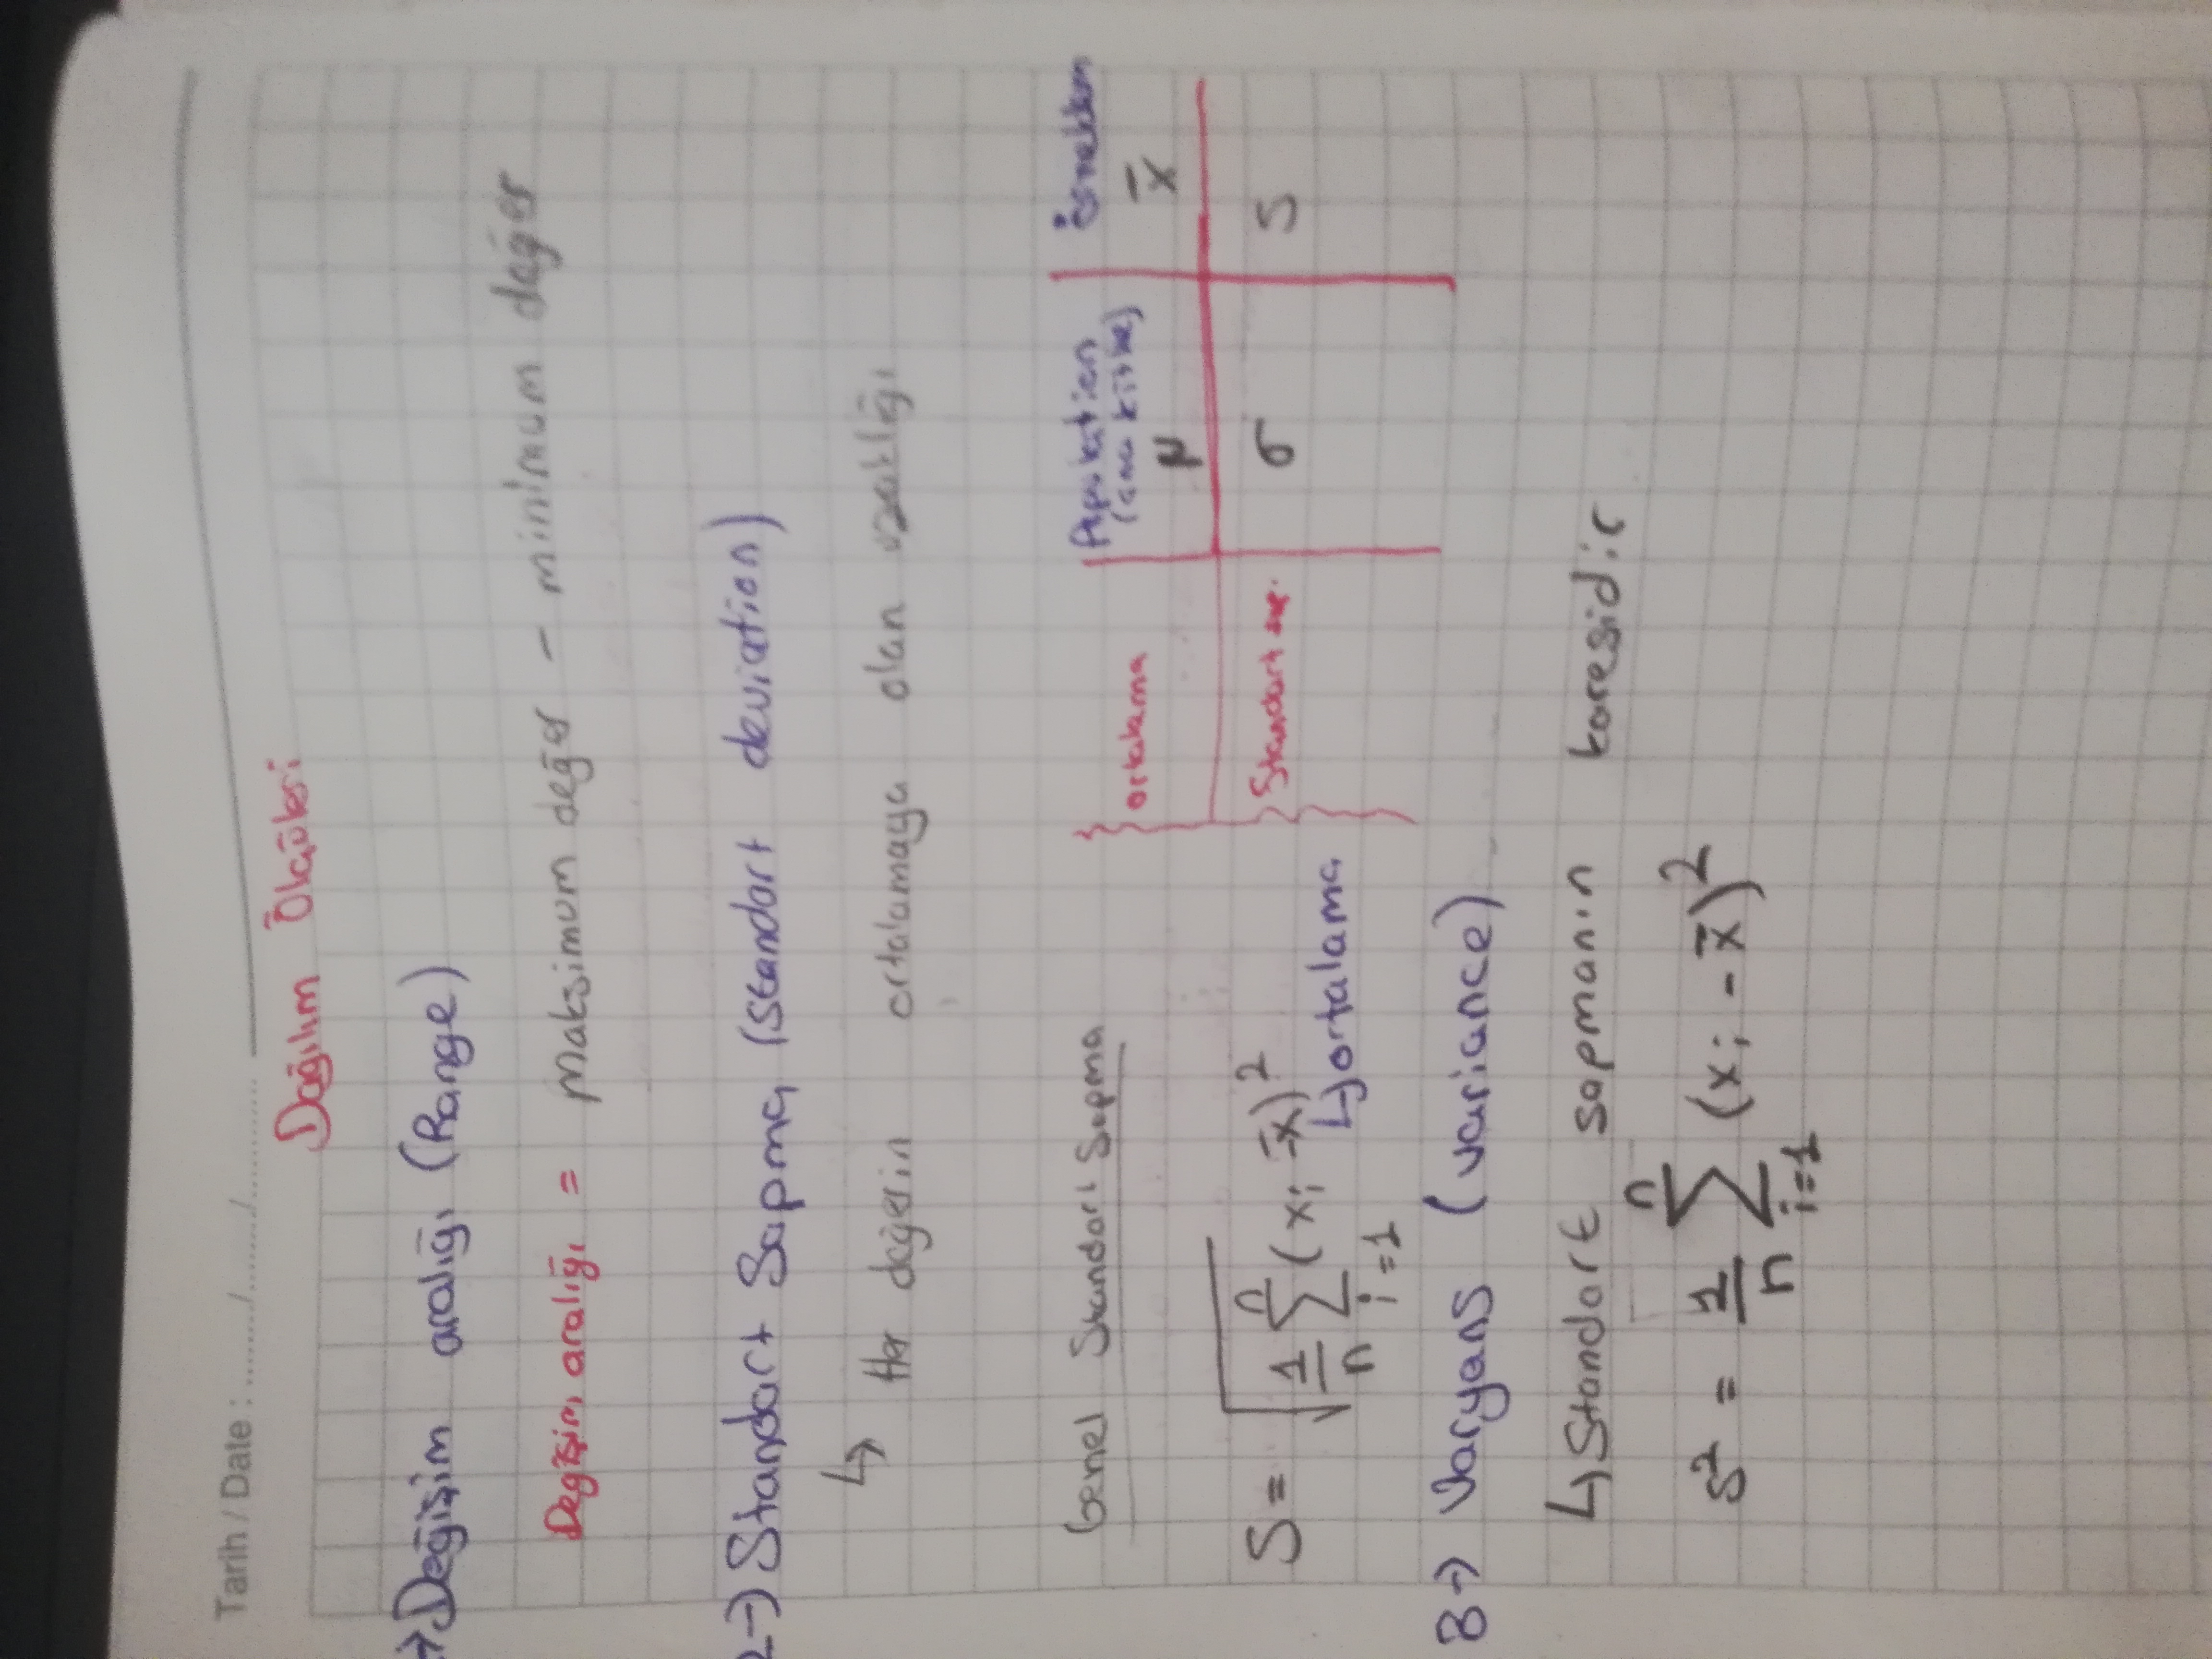 Tarih / Date : ......./......./...............
Dağılım Ölçüsü
→Değişim aralığı (Range)
Değişim aralığı = Maksimum değer - minimum değer
2→) Standart Sapma (standart deviation)
↳ Her değerin ortalamaya olan uzaklığı
Genel Standart Sapma
Population örneklem
(ana kitle)
ortalama μ x̄
Standart sap. σ S
S = √ 1/n ∑ⁿᵢ₌₁ (xᵢ - x̄)²
↳ortalama
3→) Varyans (variance)
↳Standart sapmanın karesidir
s² = 1/n ∑ⁿᵢ₌₁ (xᵢ - x̄)²